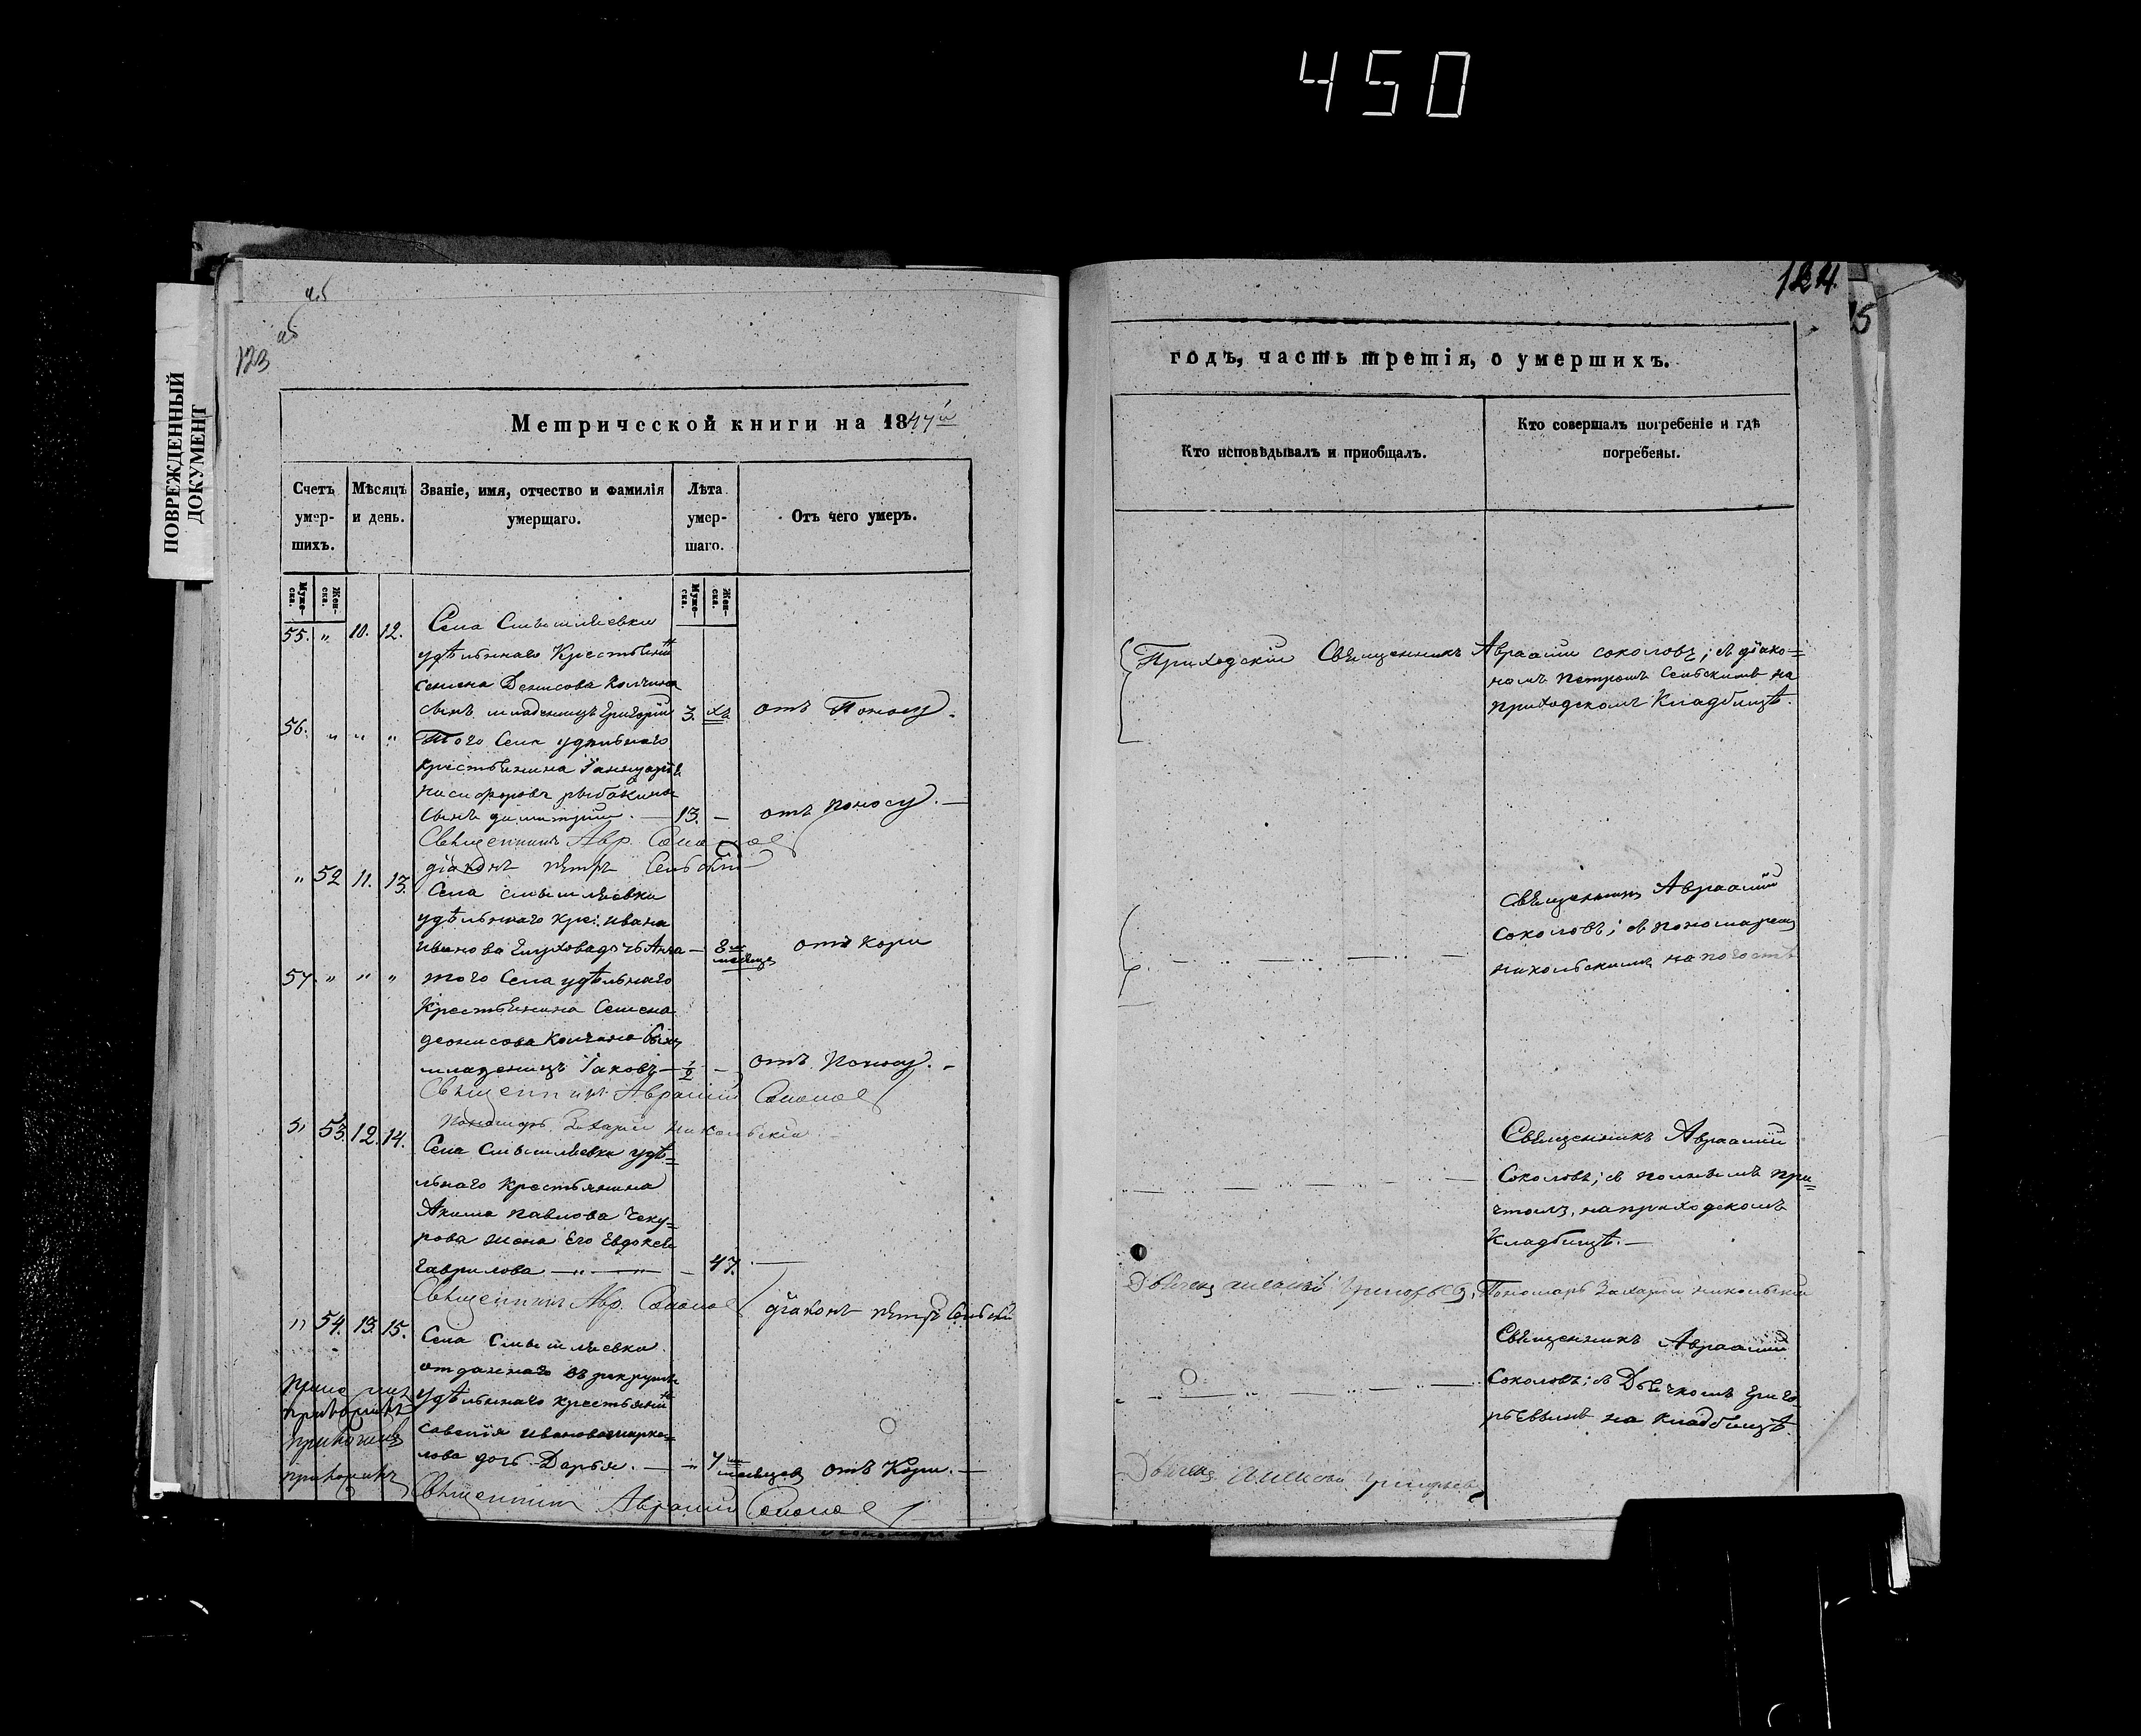 450
ПОВРЕЖДЕННЫЙ
ДОКУМЕНТ
123
Метрической книги на 1847й
Счетъ умер-шихъ.
Мѣсяцъ и день.
Званіе, имя, отчество и фамилія умершаго.
Лѣта умер-шаго.
Отъ чего умеръ.
Муже-ска.
Жен-ска.
Муже-ска.
Жен-ска.
55. " 10. 12. Села Смышляевки
удѣльнаго
Семена Денисова Колчина
сынъ младенецъ Григорій 3. отъ Поносу.
56. " " " Того Села удѣльнаго
крестьянина
сынъ димитрій. — 13. — отъ поносу. —
Священникъ Авр. Соколов
діаконъ петръ
" 52 11. 13. Села смышляевки
удѣльнаго крес. ивана
иванова дочь Анна — 8 отъ кори
57. " " " того Села удѣльнаго
Крестьянина Семена
деонисова Колчина сынъ
младенецъ Іаковъ — 1/2 — отъ Поносу. -
Священникъ Авраамій Соколов
Пономарь Захарій никольскій
53. 12. 14. Села Смышляевки удѣ=
льнаго крестьянина
Акима павлова Чеку=
рова жена Его Евдокея
гаврилова — " — " — 47. —
Священникъ Авр. Соколов діаконъ петръ
" 54. 13. 15. Села Смышляевки
отданнаго въ рекруты
удѣльнаго
иванова
лова дочь Дарья. — " 7 отъ Кори. —
Священникъ Авраамій Соколов
124.
15
годъ, часть третія, о умершихъ.
Кто исповѣдывалъ и приобщалъ.
Кто совершалъ погребеніе и гдѣ
погребены.
Приходскій Священникъ Авраамій соколовъ; съ діако=
номъ петромъ на
приходскомъ Кладбищѣ.
Священникъ Авраамій
соколовъ; съ пономаремъ
никольскимъ на погостѣ
Священникъ Авраамій
Соколовъ; съ полнымъ при=
чтомъ, на приходскомъ
Кладбищѣ. —
Дьячекъ алексей Григорьев, Пономарь Захарій никольскій
Священникъ Авраамій
Соколовъ; съ Дьячкомъ Григо-
рьевымъ на кладбищѣ.
Дьячекъ алексей Григорьев